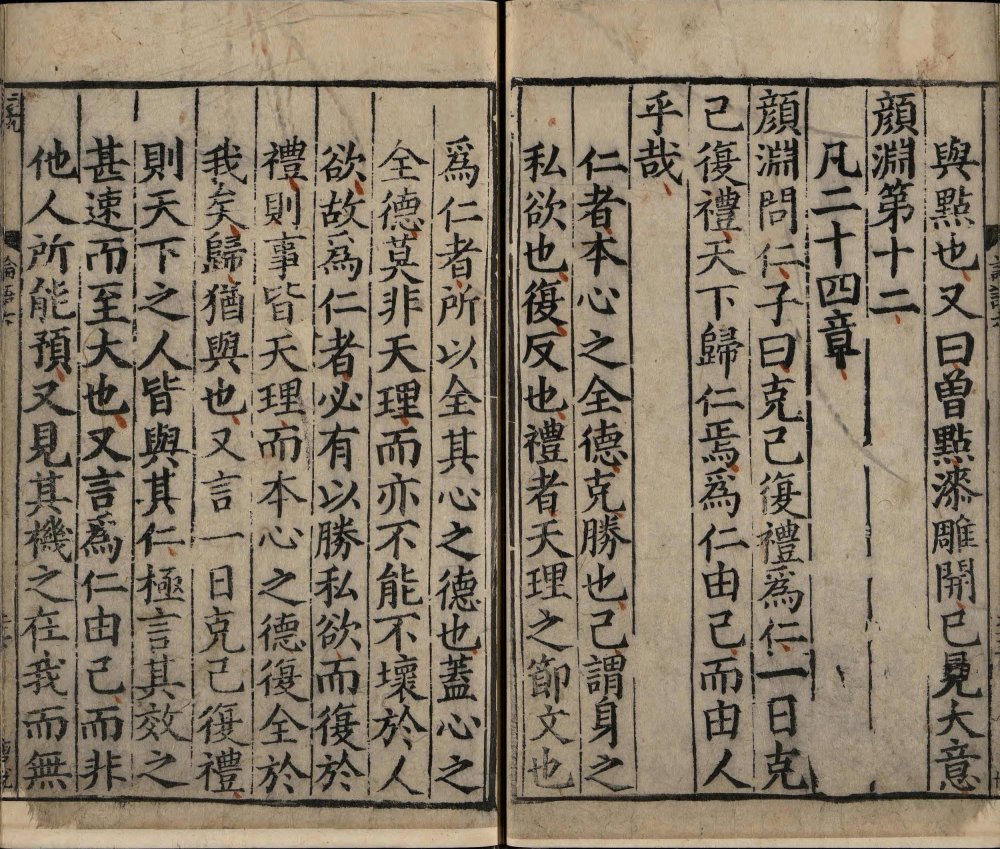 與點也又曰曾點漆雕開已見大意
顏淵第十二
凡二十四章
顏淵問仁子曰克己復禮爲仁一日克
己復禮天下歸仁焉爲仁由己而由人
乎哉
仁者本心之全德克勝也己謂身之
私欲也復反也禮者天理之節文也
爲仁者所以全其心之德也蓋心之
全德莫非天理而亦不能不壞於人
欲故爲仁者必有以勝私欲而復於
禮則事皆天理而本心之德復全於
我矣歸猶與也又言一日克己復禮
則天下之人皆與其仁極言其效之
甚速而至大也又言爲仁由己而非
他人所能預又見其機之在我而無
論語六